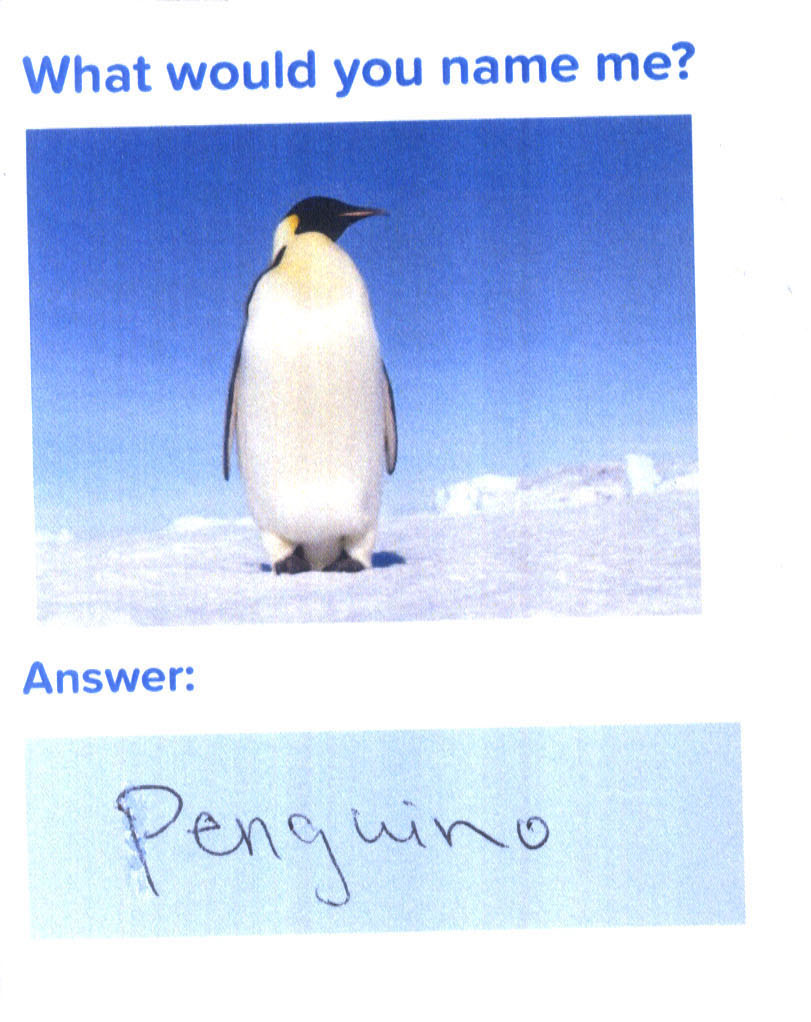 What would you name me?
Answer:
Penguino